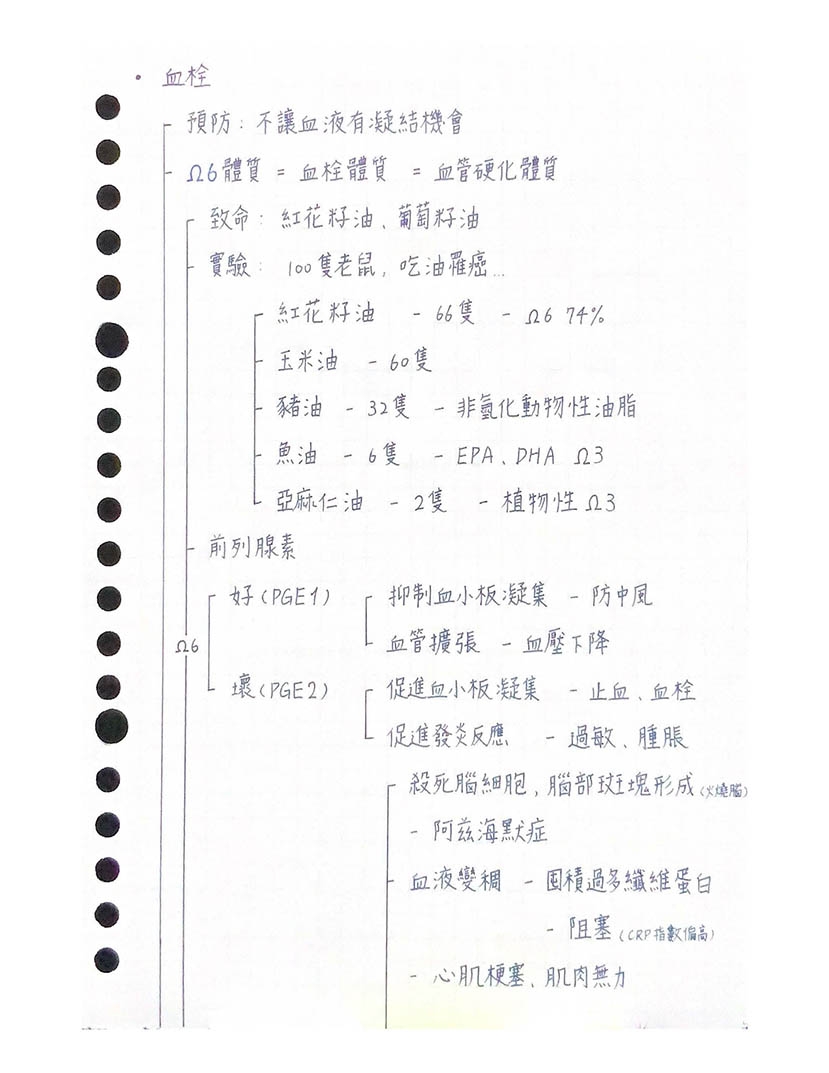 • 血栓
預防: 不讓血液有凝結機會
Ω6體質 = 血栓體質 = 血管硬化體質
致命: 紅花籽油、葡萄籽油
實驗: 100隻老鼠, 吃油罹癌...
紅花籽油 - 66隻 - Ω6 74%
玉米油 - 60隻
豬油 - 32隻 - 非氫化動物性油脂
魚油 - 6隻 - EPA、DHA Ω3
亞麻仁油 - 2隻 - 植物性Ω3
前列腺素
好(PGE1) 抑制血小板凝集 - 防中風
Ω6 血管擴張 - 血壓下降
壞(PGE2) 促進血小板凝集 - 止血、血栓
促進發炎反應 - 過敏、腫脹
殺死腦細胞, 腦部斑塊形成(火燒腦)
- 阿茲海默症
血液變稠 - 囤積過多纖維蛋白
- 阻塞(CRP指數偏高)
- 心肌梗塞、肌肉無力